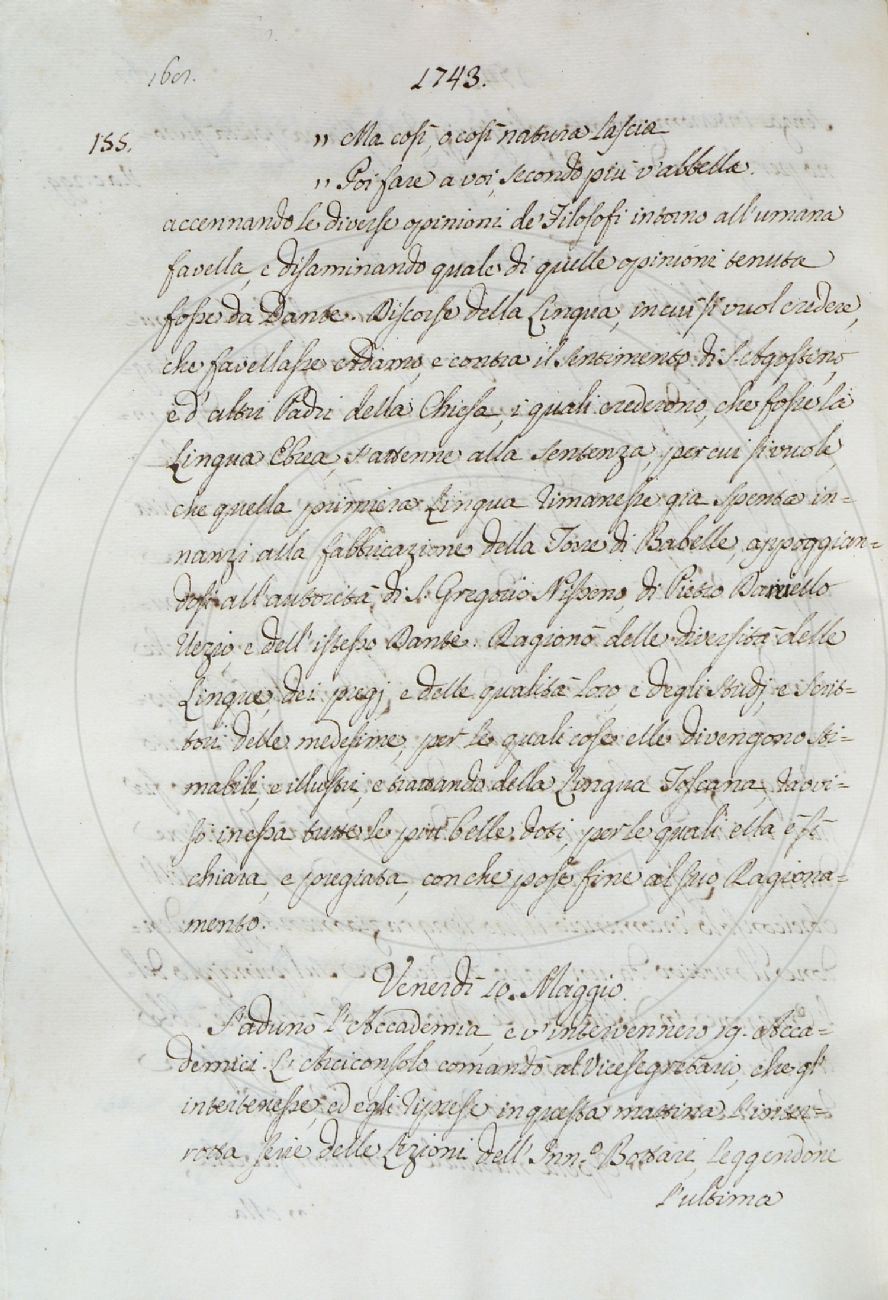 160.
1743.
155.
„ Ma così, o così natura lascia
„ Poi fare a voi, secondo più v'abbella.
accennando le diverse opinioni de' Filosofi intorno all'umana
favella, e disaminando quale di quelle opinioni tenuta
fosse da Dante. Discorse della Lingua, in cui si vuol credere,
che favellasse Adamo, e contra il sentimento di S. Agostino,
e d'altri Padri della Chiesa, i quali crederono, che fosse la
Lingua Ebrea, s'attenne alla sentenza, per cui si vuole,
che quella primiera Lingua rimanesse già spenta in-
nanzi alla fabbricazione della Torre di Babelle, appoggian-
dosi all'autorità di S. Gregorio Nisseno, di Pietro Daniello
Uezio, e dell'istesso Dante. Ragionò delle diversità delle
Lingue, dei pregj, e delle qualità loro, e degli studj, e Scrit-
tori delle medesime, per le quali cose elle divengono sti-
mabili, e illustri, e trattando della Lingua Toscana, ravvi-
sò in essa tutte le più belle doti, per le quali ella è sì
chiara, e pregiata, con che pose fine al suo Ragiona-
mento.
Venerdì 10. Maggio.
S'adunò l'Accademia, e v'intervennero 19. Acca-
demici. L'Arciconsolo comandò al Vicesegretario, che gl'
intertenesse, ed egli riprese in questa mattina l'inter-
rotta serie delle Lezioni dell'Inn.º Bottari, leggendone
l'ultima